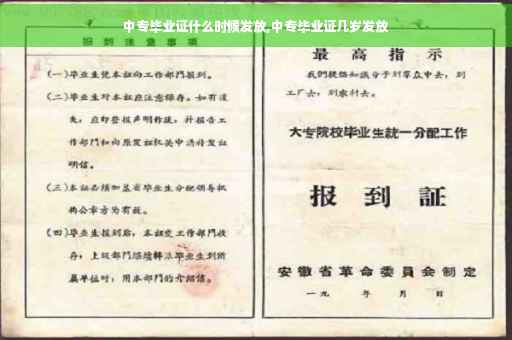 中专毕业证什么时候发放,中专毕业证几岁发放
报到注意事项
(一)毕业生凭本证向工作部门报到。
(二)毕业生对本证应注意保存。如有遗
失,应即登报声明作废,并报告工
作部门和向原发证机关申请补发证
明信。
(三)本证必须加盖省毕业生分配领导机
构公章方为有效。
(四)毕业生报到后,本证交工作部门收
存;上级部门继续转派毕业生到所
属单位时,用本部门的介绍信。
最高指示
我们提倡知识分子到群众中去,到
工厂去,到农村去。
大专院校毕业生统一分配工作
报到证
安徽省革命委員会制定
一九 年 月 日